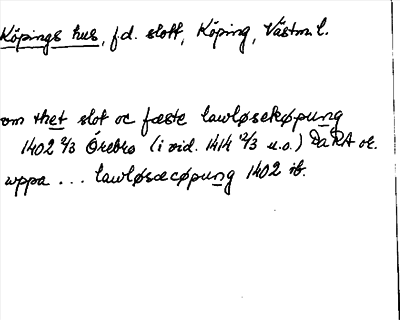 Köpings hus, f.d. slott, Köping, Västm. l.
om thet slot oc fæste lawløsekøpung
1402 2/3 Örebro (i vid. 1414 12/3 u.o.) DaRA or.
uppa ... lawløsæcøpung 1402 ib.